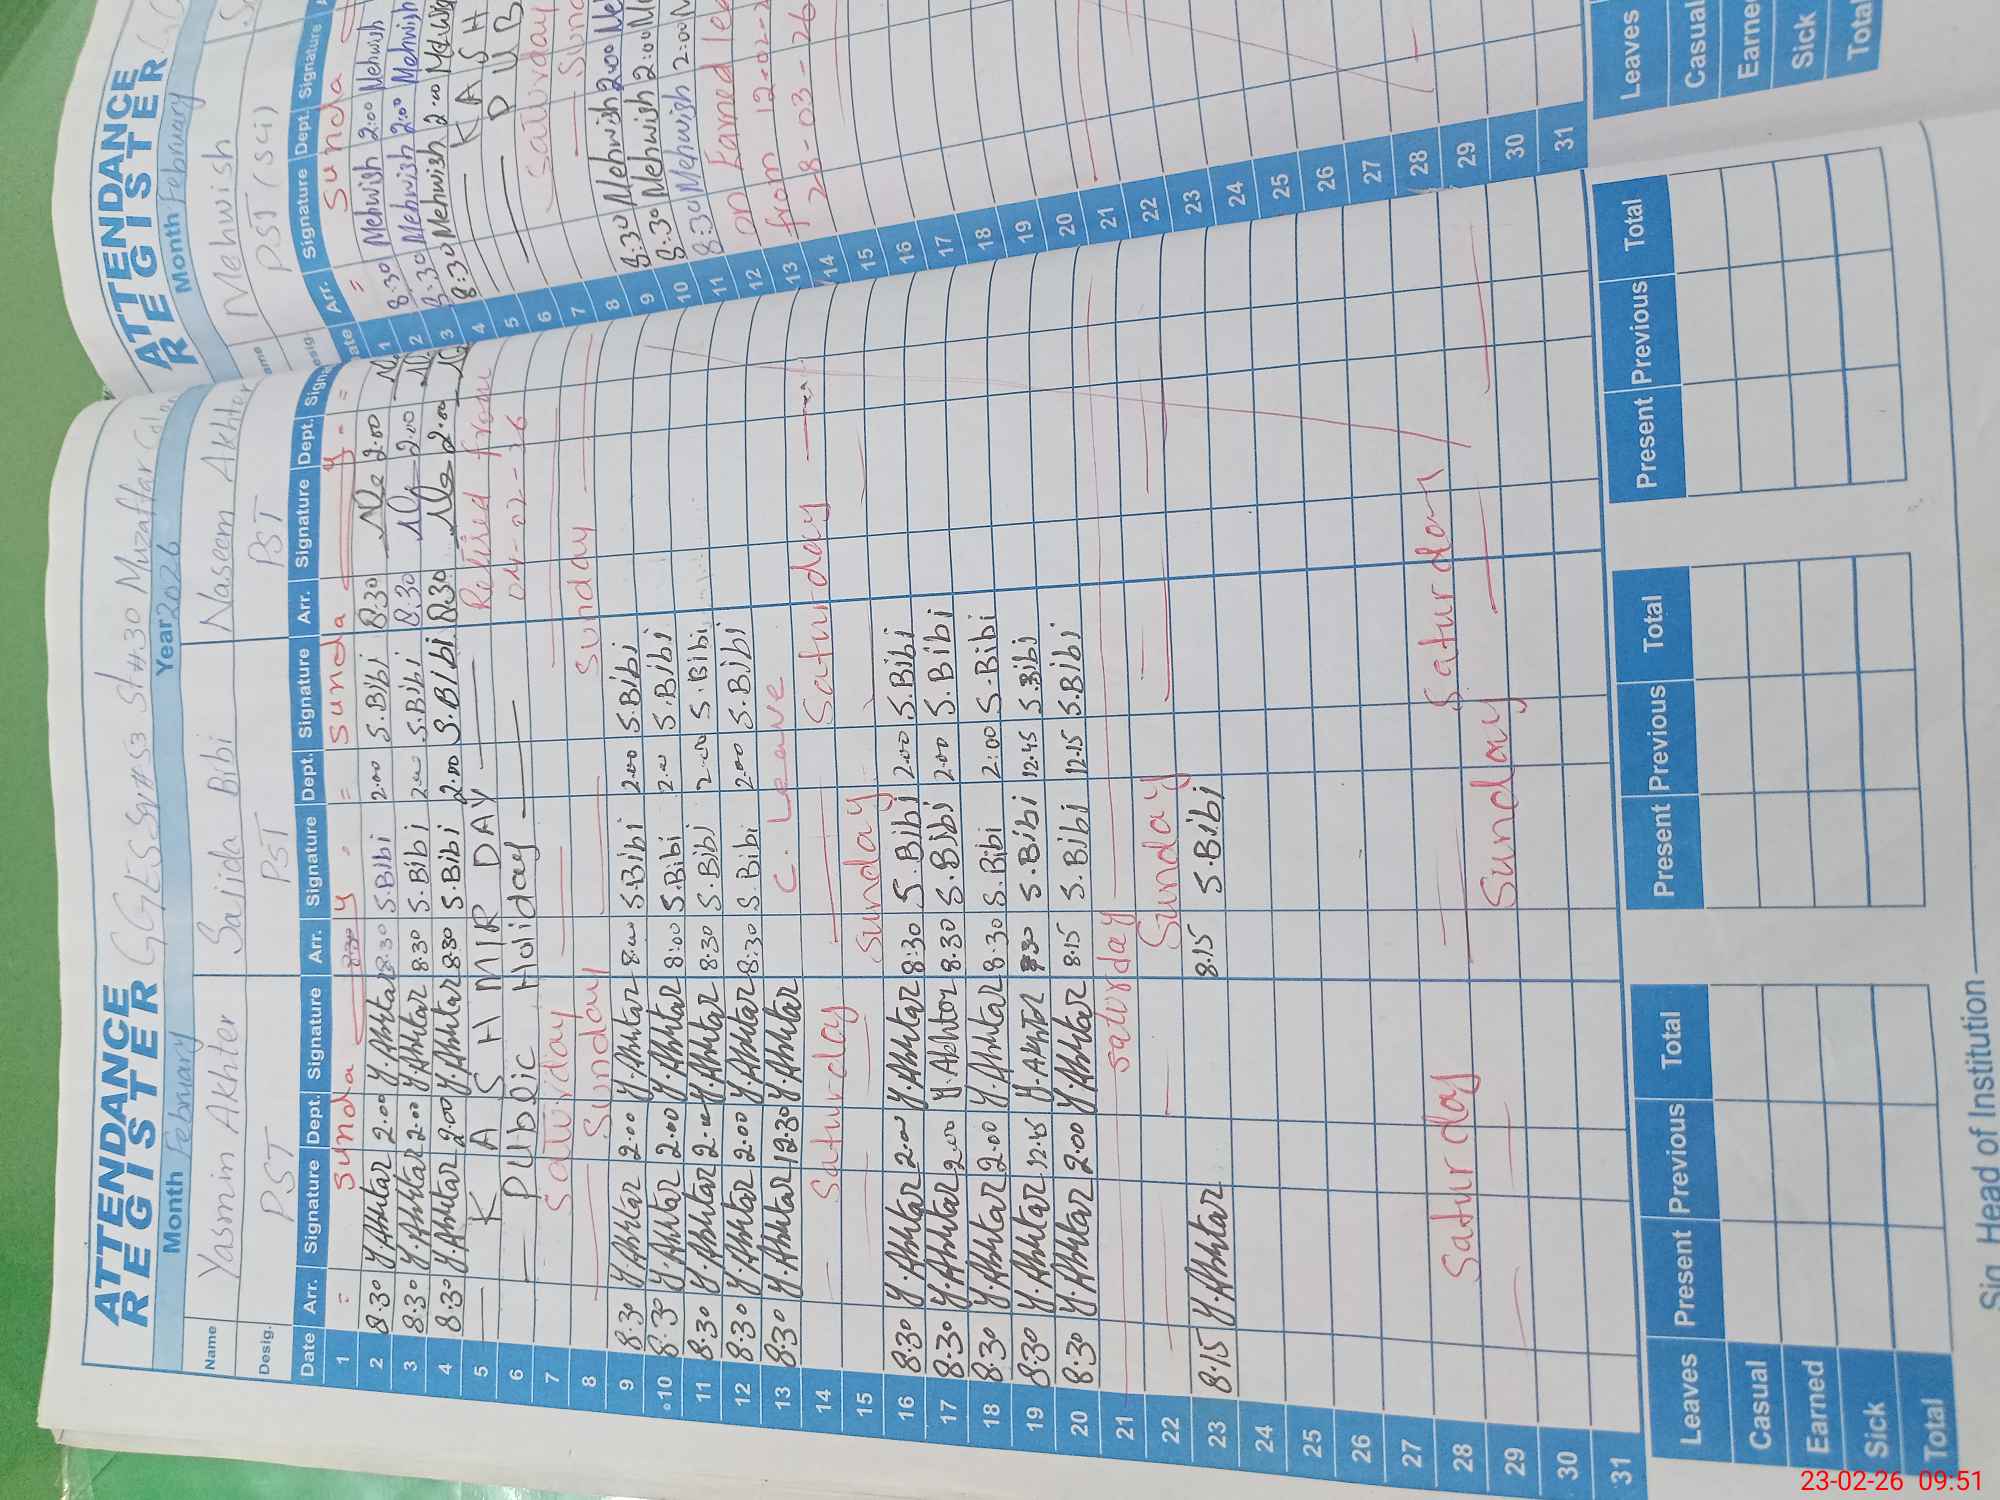 ATTENDANCE REGISTER
GGES Sgr# 53 St # 30 Muzaffar
Month February Year 2026
Name Yasmin Akhter Sajida Bibi Naseem Akhter
Desig. PST PST PST
Date Arr. Signature Dept. Signature Arr. Signature Dept. Signature Arr. Signature Dept.
1 = Sunda 8:30 y = Sunda y =
2 8:30 Y.Akhtar 2:00 Y.Akhtar 8:30 S.Bibi 2:00 S.Bibi 8:30 2:00
3 8:30 Y.Akhtar 2:00 Y.Akhtar 8:30 S.Bibi 2:00 S.Bibi 8:30 2:00
4 8:30 Y.Akhtar 2:00 Y.Akhtar 8:30 S.Bibi 2:00 S.Bibi 8:30 2:00
5 KASHMIR DAY Retired from
6 PUblic Holiday 04-02-26
7 Saturday
8 Sunday Sunday
9 8:30 Y.Akhtar 2:00 Y.Akhtar 8:00 S.Bibi 2:00 S.Bibi
10 8:30 Y.Akhtar 2:00 Y.Akhtar 8:00 S.Bibi 2:00 S.Bibi
11 8:30 Y.Akhtar 2:00 Y.Akhtar 8:30 S.Bibi 2:00 S.Bibi
12 8:30 Y.Akhtar 2:00 Y.Akhtar 8:30 S.Bibi 2:00 S.Bibi
13 8:30 Y.Akhtar 12:30 Y.Akhtar C. Leave
14 Saturday Saturday
15 Sunday
16 8:30 Y.Akhtar 2:00 Y.Akhtar 8:30 S.Bibi 2:00 S.Bibi
17 8:30 Y.Akhtar 2:00 Y.Akhtar 8:30 S.Bibi 2:00 S.Bibi
18 8:30 Y.Akhtar 2:00 Y.Akhtar 8:30 S.Bibi 2:00 S.Bibi
19 8:30 Y.Akhtar 12:45 Y.Akhtar 8:30 S.Bibi 12:45 S.Bibi
20 8:30 Y.Akhtar 2:00 Y.Akhtar 8:15 S.Bibi 12:15 S.Bibi
21 Saturday
22 Sunday
23 8:15 Y.Akhtar 8:15 S.Bibi
24
25
26
27
28 Saturday Saturday
29 Sunday
30
31
Leaves Present Previous Total Present Previous Total Present Previous Total
Casual
Earned
Sick
Total
Sig. Head of Institution
ATTENDANCE REGISTER
Month February
Mehwish
PST (Sci)
Arr. Signature Dept. Signature
1 = Sunda
2 8:30 Mehwish 2:00 Mehwish
3 8:30 Mehwish 2:00 Mehwish
4 8:30 Mehwish 2:00 Mehwish
5 KASH
6 PUB
7 Saturday
8 Sund
9 8:30 Mehwish 2:00 Me
10 8:30 Mehwish 2:00 M
11 8:30 Mehwish 2:00 M
12 on Earned lea
13 from 12-02-2
14 28-03-26
15
16
17
18
19
20
21
22
23
24
25
26
27
28
29
30
31
Leaves
Casual
Earned
Sick
Total
23-02-26 09:51